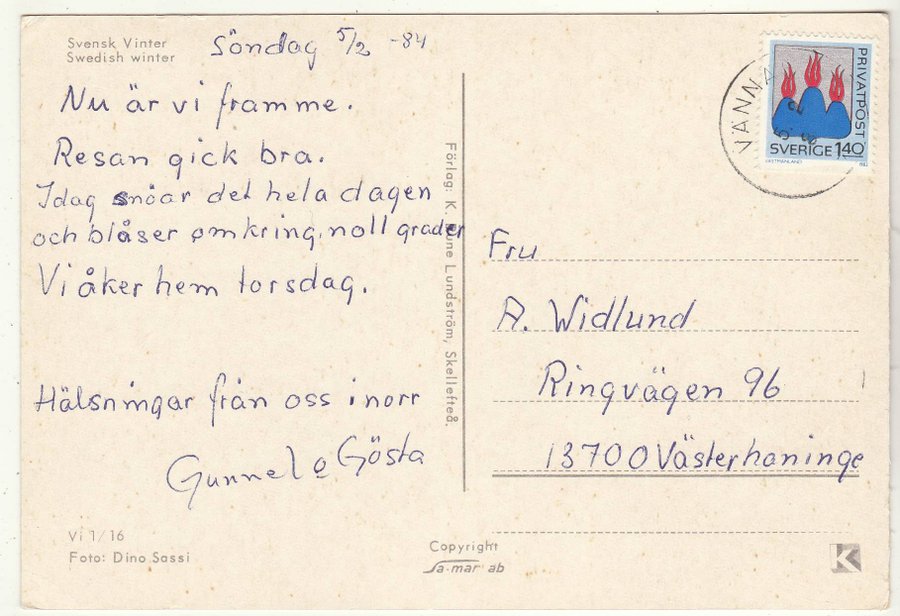 Svensk Vinter
Swedish winter
Söndag 5/2 -84
Nu är vi framme.
Resan gick bra.
Idag snöar det hela dagen
och blåser omkring noll grader
Vi åker hem torsdag.
Hälsningar från oss i norr
Gunnel o Gösta
Vi 1/16
Foto: Dino Sassi
Förlag: K. Rune Lundström, Skellefteå.
Copyright
Sa-mar ab
PRIVATPOST
SVERIGE 140
VÄSTMANLAND
Fru
A. Widlund
Ringvägen 96
13700 Västerhaninge
K